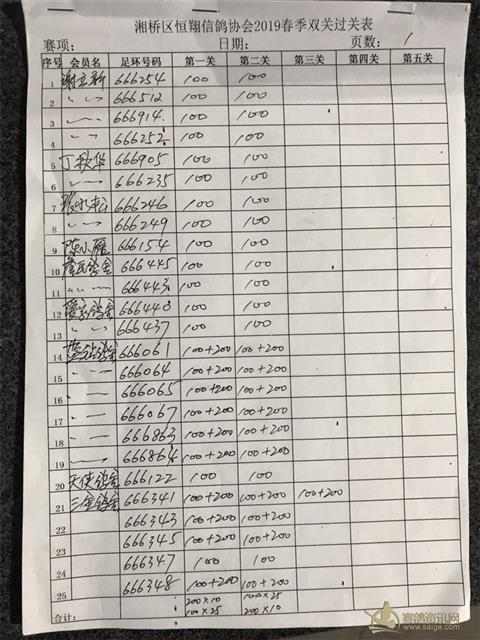 湘桥区恒翔信鸽协会2019春季双关过关表
赛项： 日期： 页数： 1
序号 会员名 足环号码 第一关 第二关 第三关 第四关 第五关
1 谢立新 666254 100 100
2 〃 666512 100 100
3 〃 666914 100 100
4 〃 666252 100 100
5 丁秋华 666905 100 100
6 〃 666235 100 100
7 666246 100 100
8 〃 666249 100 100
9 陈小 666154 100 100
10 鸽舍 666445 100 100
11 〃 666443 100 100
12 鸽舍 666440 100 100
13 〃 666437 100 100
14 鸽舍 666061 100+200 100+200
15 〃 666064 100+200 100+200
16 〃 666065 100+200 100+200
17 〃 666067 100+200 100+200
18 〃 666863 100+200 100+200
19 〃 666864 100+200 100+200
20 天使鸽舍 666122 100 100
21 三金鸽舍 666341 100+200 100+200 100+200
22 666343 100+200 100+200
23 666345 100+200 100+200
24 666347 100 100
25 666348 100+200 100+200
合计： 200×10 100×25
100×25 200×10
赛鸽资讯网
www.saige.com